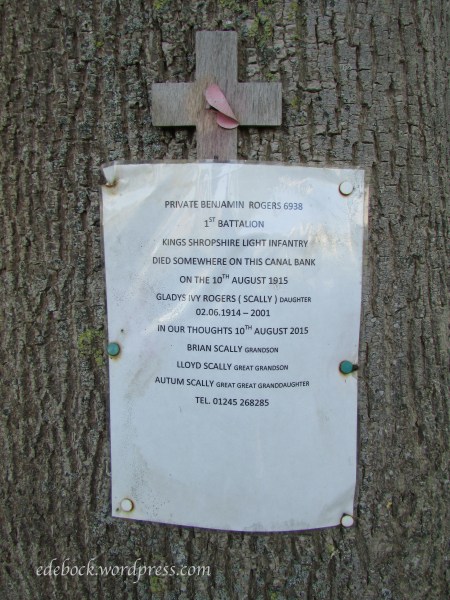 PRIVATE BENJAMIN ROGERS 6938
1ST BATTALION
KINGS SHROPSHIRE LIGHT INFANTRY
DIED SOMEWHERE ON THIS CANAL BANK
ON THE 10TH AUGUST 1915
GLADYS IVY ROGERS ( SCALLY ) DAUGHTER
02.06.1914 – 2001
IN OUR THOUGHTS 10TH AUGUST 2015
BRIAN SCALLY GRANDSON
LLOYD SCALLY GREAT GRANDSON
AUTUM SCALLY GREAT GREAT GRANDDAUGHTER
TEL. 01245 268285
edebock.wordpress.com